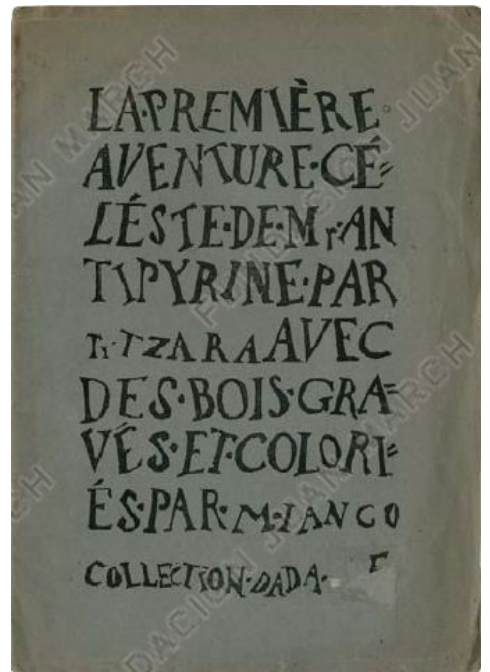 LA·PREMIÈRE·
AVENTURE·CÉ=
LÉSTE·DE·Mr·AN
TIPYRINE·PAR
Tr·TZARA AVEC
DES·BOIS·GRA=
VÉS·ET·COLORI=
ÉS·PAR·M·IANCO
COLLECTION·DADA·
FUNDACIÓN JUAN MARCH